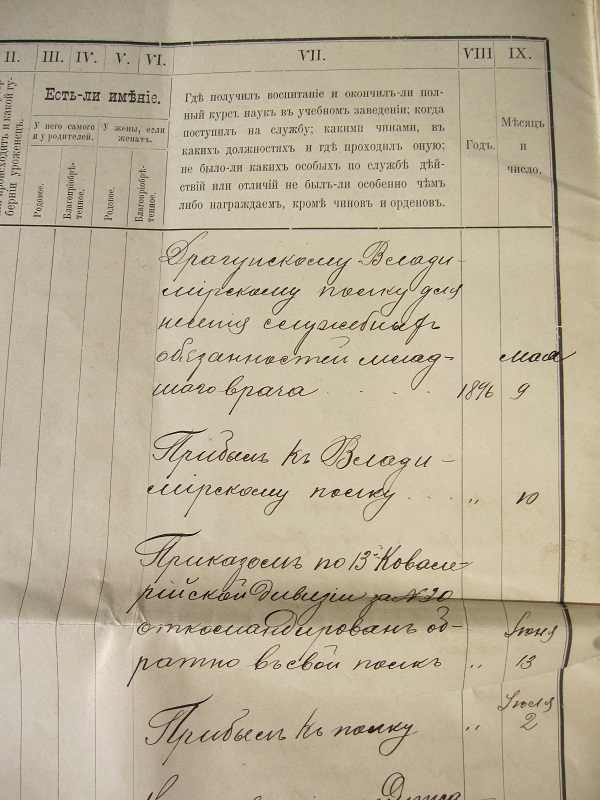 II. III. IV. V. VI. VII. VIII IX.
происходитъ и какой гу-
берніи уроженецъ.
Есть-ли имѣніе.
У него самого
и у родителей.
У жены, если
женатъ.
Родовое.
Благопріобрѣ-
тенное.
Родовое.
Благопріобрѣ-
тенное.
Гдѣ получилъ воспитаніе и окончилъ-ли пол-
ный курсъ наукъ въ учебномъ заведеніи; когда
поступилъ на службу; какими чинами, въ
какихъ должностяхъ и гдѣ проходилъ оную;
не было-ли какихъ особыхъ по службѣ дѣй-
ствій или отличій не былъ-ли особенно чѣмъ
либо награждаемъ, кромѣ чиновъ и орденовъ.
Годъ.
Мѣсяцъ
и
число.
Драгунскому Влади-
мірскому полку для
несенія служебныхъ
обязанностей млад- мая
шаго врача 1896 9
Прибылъ къ Влади-
мірскому полку „ 10
Приказомъ по 13й Кавале-
рійской дивизіи за №20
откомандированъ об- Іюня
ратно въ свой полкъ „ 13
Іюля
Прибылъ къ полку „ 2